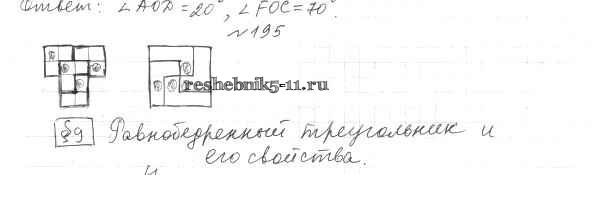 Ответ: ∠AOD = 20°, ∠FOC = 70°.
№195
reshebnik5-11.ru
§9 Равнобедренный треугольник и
его свойства.